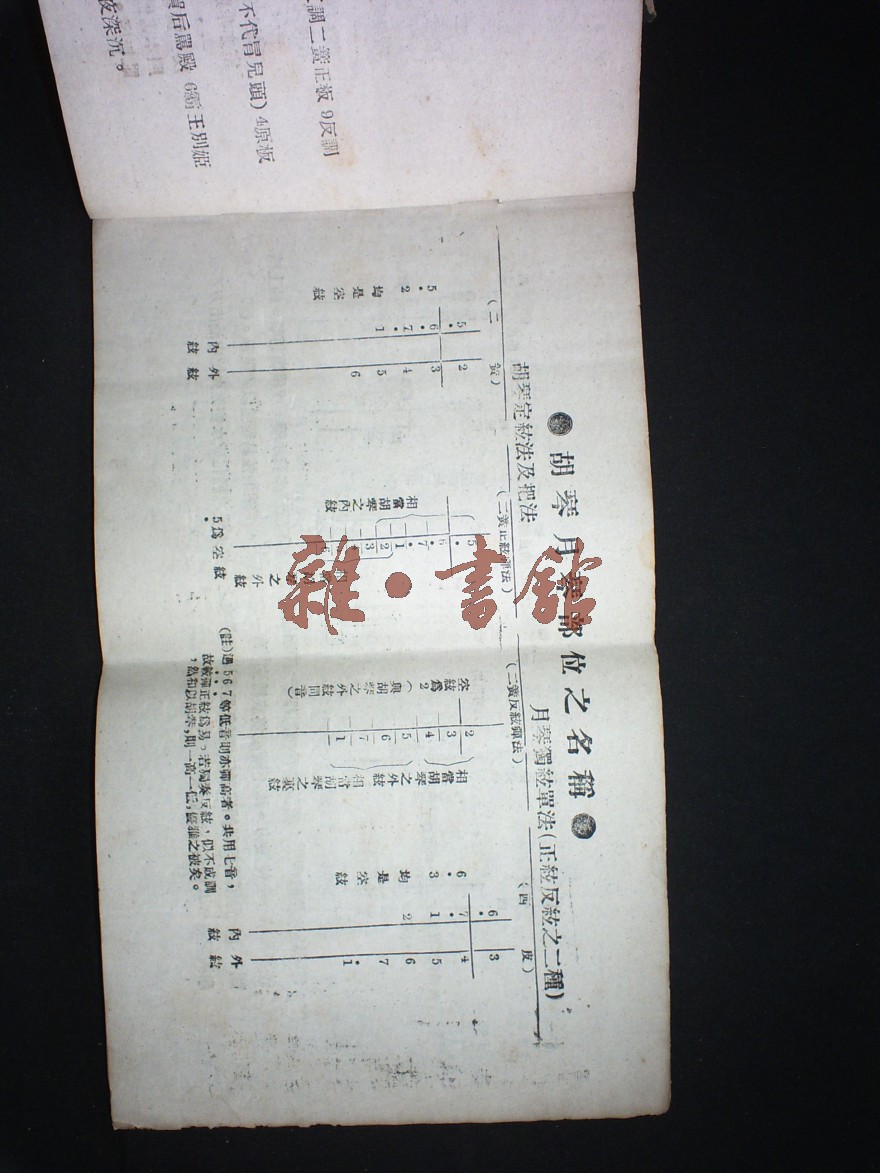 調二簧正板 9反調
不代冒兒頭) 4原板
后罵殿 6霸王別姬
夜深沉。
胡琴月琴部位之名稱
胡琴定絃法及把法
月琴獨絃單法(正絃反絃之二種)
(二簧)
5 2
6 3
7 4
1 5
6
內絃 外絃
5 2 均是空絃
(二簧正絃彈法)
5
6
7
1
2
3
相當胡琴之內絃
之外絃
5爲空絃
(二簧反絃彈法)
2
3
4
5
6
7
1
空絃爲2(與胡琴之外絃同音)
相當胡琴之外絃
相當胡琴之裏絃
(西皮)
6 3
7 4
1 5
2 6
7
1
內絃 外絃
6 3 均是空絃
(註)遇567等低音則亦彈高者。共用七音,
故彈正絃爲易,若獨奏反絃,似不成調
,然和以胡琴,則一高一低,優雅之被矣。
雜·書館